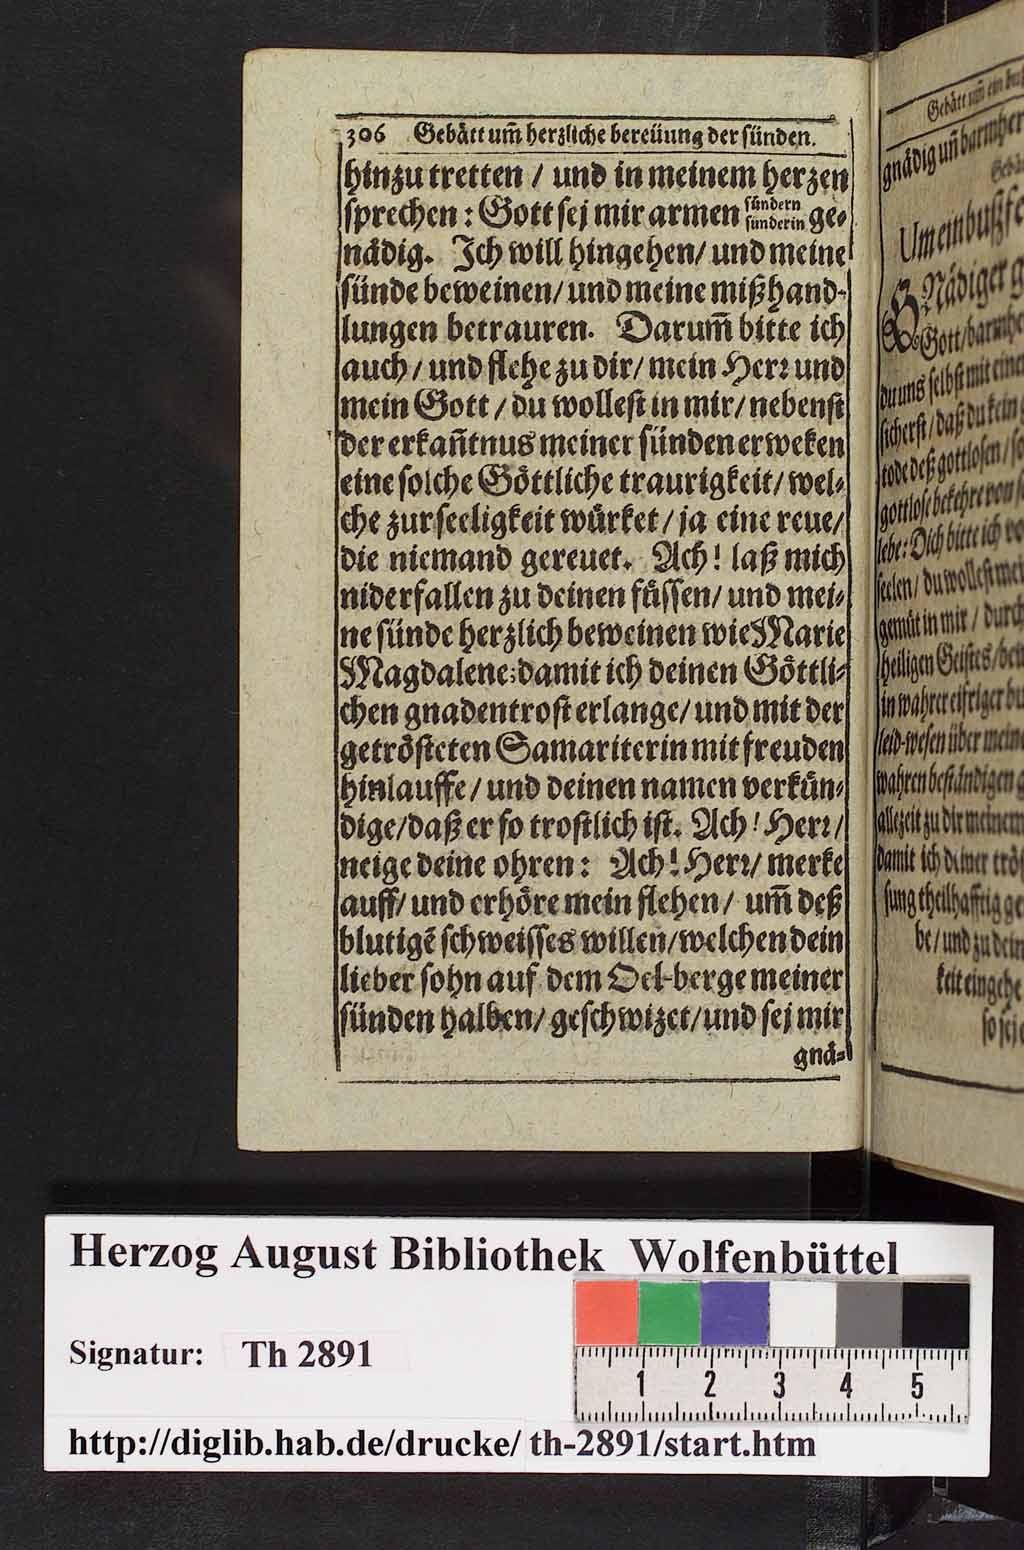 306 Gebått um̃ herzliche bereüung der sünden.
hinzu tretten / und in meinem herzen
sprechen: Gott sej mir armen sündern sünderin ge-
nådig. Ich will hingehen/ und meine
sünde beweinen/ und meine mißhand-
lungen betrauren. Darum̃ bitte ich
auch/ und flehe zu dir/ mein Herr und
mein Gott / du wollest in mir/ nebenst
der erkañtnus meiner sünden erweken
eine solche Göttliche traurigkeit/ wel-
che zur seeligkeit würket/ ja eine reue/
die niemand gereuet. Ach! laß mich
niderfallen zu deinen füssen/ und mei-
ne sünde herzlich beweinen wie Marie
Magdalene: damit ich deinen Göttli-
chen gnadentrost erlange/ und mit der
getrösteten Samariterin mit freuden
hinlauffe/ und deinen namen verkün-
dige/ daß er so trostlich ist. Ach! Herr/
neige deine ohren: Ach! Herr/ merke
auff/ und erhöre mein flehen/ um̃ deß
blutigẽ schweisses willen/ welchen dein
lieber sohn auf dem Oel-berge meiner
sünden halben/ geschwizet/ und sej mir
gnå-
Gebått um̃ ein buß
gnådig uñ barmher
Gebå
Um ein bußfe
GNådiger g
Gott/ barmhe
du uns selbst mit eine
sicherst/ daß du kein
tode deß gottlosen/ so
gottlose bekehre von s
lebe: Dich bitte ich vo
seelen/ du wollest mei
gemüt in mir / durch
heiligen Geistes/ be
in wahrer eifriger bu
leid-wesen über meine
wahren beståndigen g
allezeit zu dir meinem
damit ich deiner trö
sung theilhafftig ge
be/ und zu dein
keit eingehe
so sej
Herzog August Bibliothek Wolfenbüttel
Signatur: Th 2891
1 2 3 4 5
http://diglib.hab.de/drucke/th-2891/start.htm